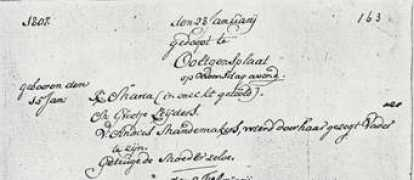 1808. den 23 January 163
Gedoopt te
Ooltgensplaat
op woensdag avond.
geboren den
15 Jan: K. Thana (in onecht geteelt).
M. Grietje Leijders.
V. Andries Shandemakers, wierd door haar gezegt Vader
te zijn.
Getuige de Moeder zelve.